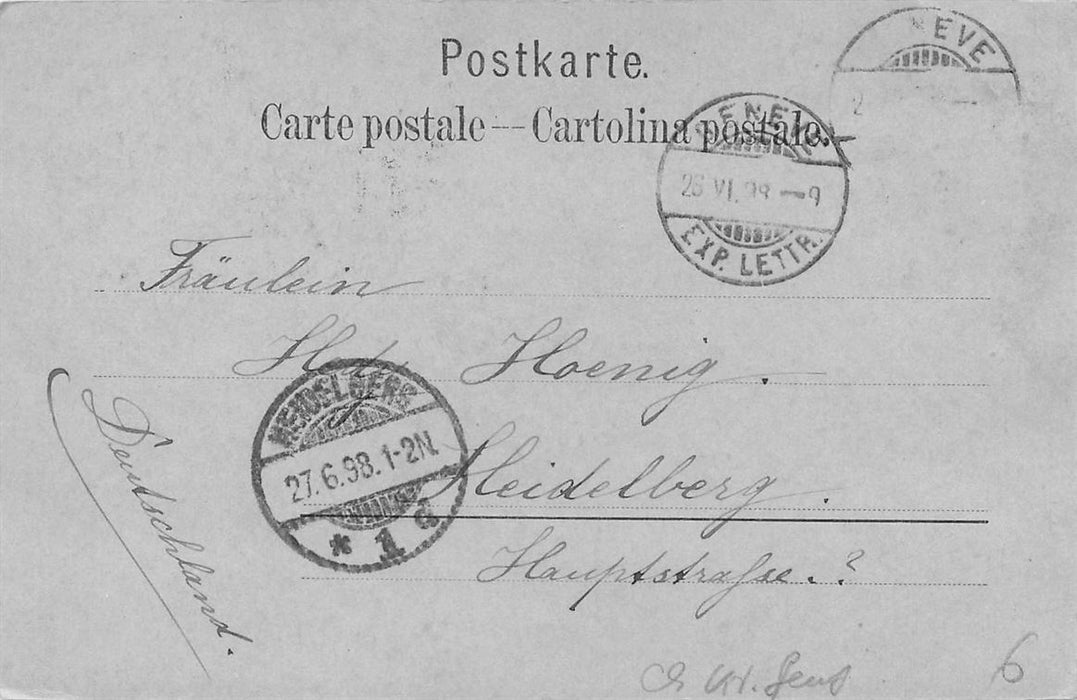 Postkarte.
Carte postale — Cartolina postale.
EVE
GENEVE
26 VI. 98 — 9
EXP. LETTR.
Fräulein
Hoenig.
HEIDELBERG
27.6.98.1-2N.
* 1 d
Heidelberg.
Hauptstraſse.?
Deutschland.
6